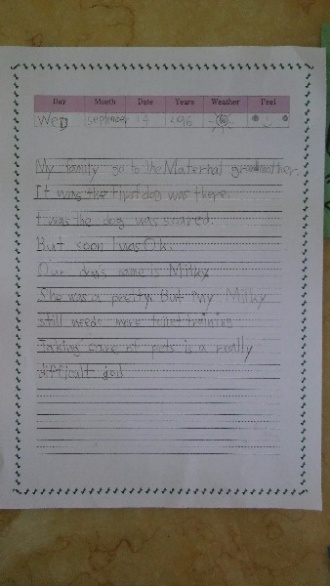 Day Month Date Years Weather Feel
Wed September 14 2016
My family go to the Maternal grandmother.
It was the first dog was there.
I was the dog was scared.
But soon I was Ok.
Our dog's name is Milky
She was a pretty. But My Milky
still needs more toilet training
Taking care of pets is a really
difficult